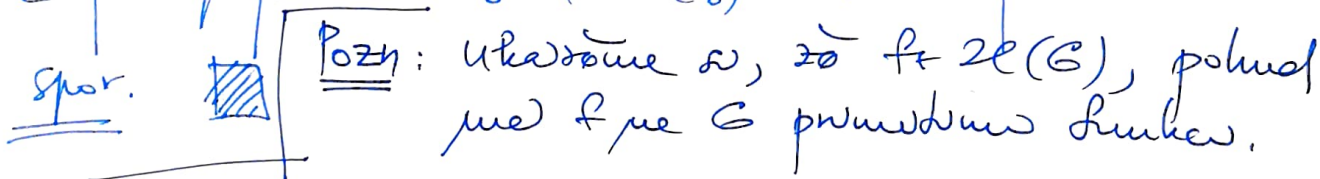 spor.
Pozn: Ukážeme si, že f ∈ ℋ(G), pokud
má f na G primitivní funkci.